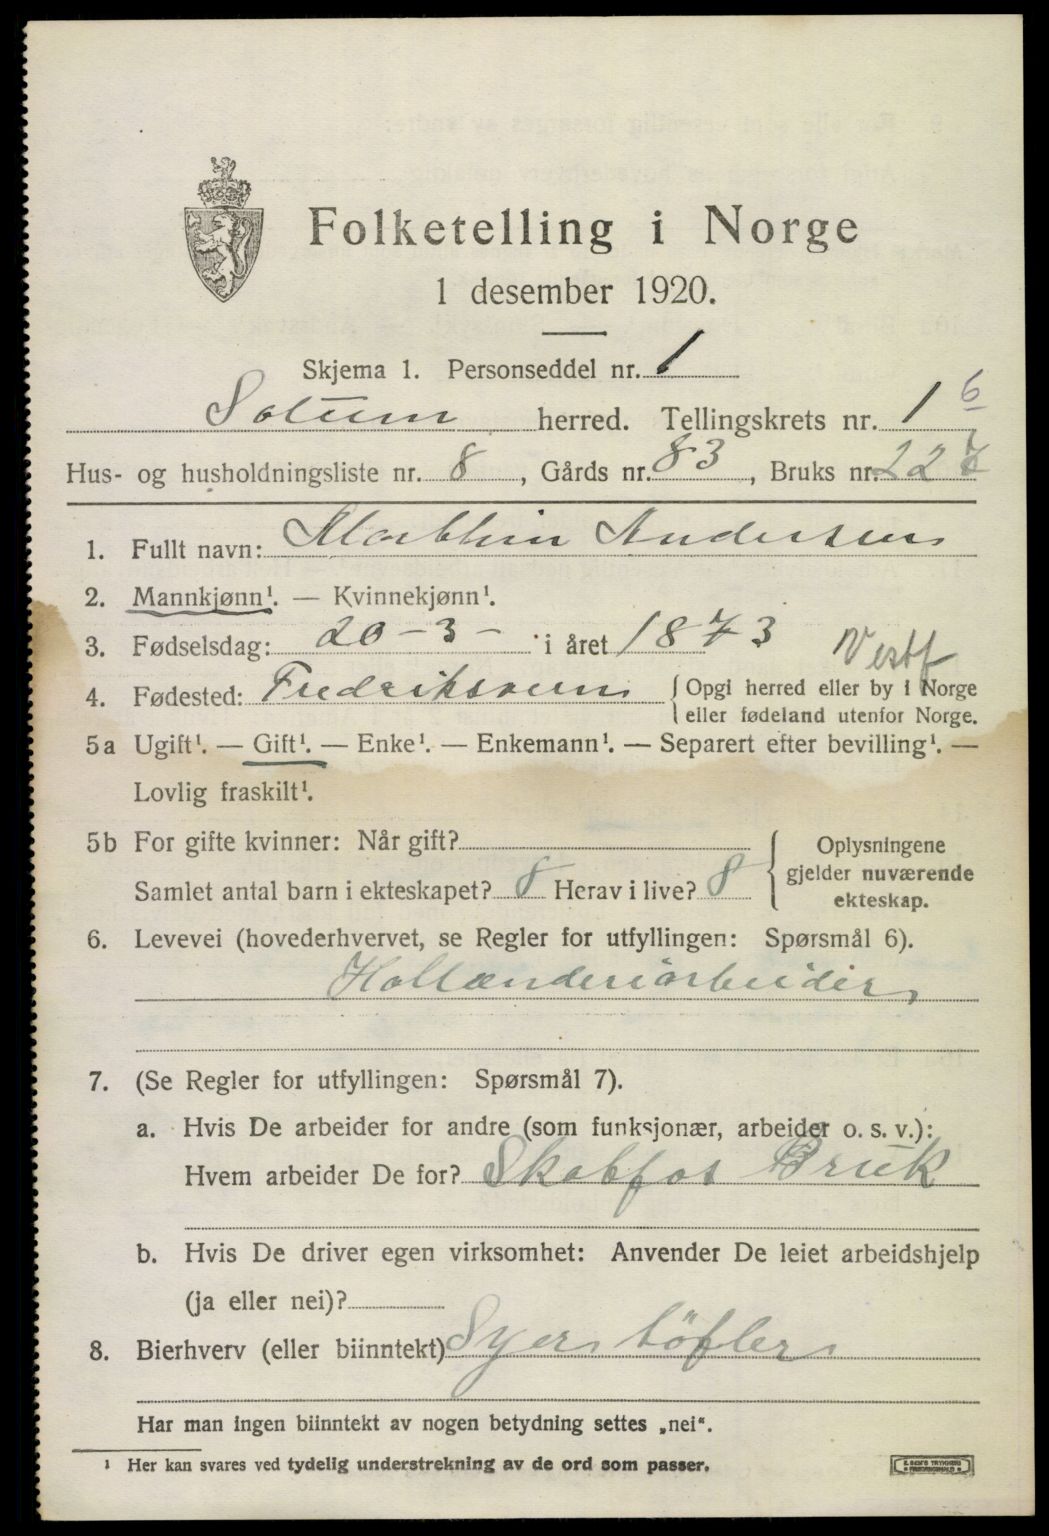 Folketelling i Norge
1 desember 1920.
Skjema 1. Personseddel nr. 1
Solum herred. Tellingskrets nr. 1 6
Hus- og husholdningsliste nr. 8, Gårds nr. 83, Bruks nr. 227
1. Fullt navn: Andersen
2. Mannkjønn¹. — Kvinnekjønn¹.
3. Fødselsdag: 20-3- i året 1873
Vestf
4. Fødested: Fredriksvern { Opgi herred eller by i Norge
eller fødeland utenfor Norge.
5a Ugift¹. — Gift¹. — Enke¹. — Enkemann¹. — Separert efter bevilling¹. —
Lovlig fraskilt¹.
5b For gifte kvinner: Når gift?
Samlet antal barn i ekteskapet? 8 Herav i live? 8
Oplysningene
gjelder nuværende
ekteskap.
6. Levevei (hovederhvervet, se Regler for utfyllingen: Spørsmål 6).
Hollænderiarbeider
7. (Se Regler for utfyllingen: Spørsmål 7).
a. Hvis De arbeider for andre (som funksjonær, arbeider o. s. v.):
Hvem arbeider De for? Skotfos Bruk
b. Hvis De driver egen virksomhet: Anvender De leiet arbeidshjelp
(ja eller nei)?
8. Bierhverv (eller biinntekt) Syer töfler
Har man ingen biinntekt av nogen betydning settes „nei“.
¹ Her kan svares ved tydelig understrekning av de ord som passer.